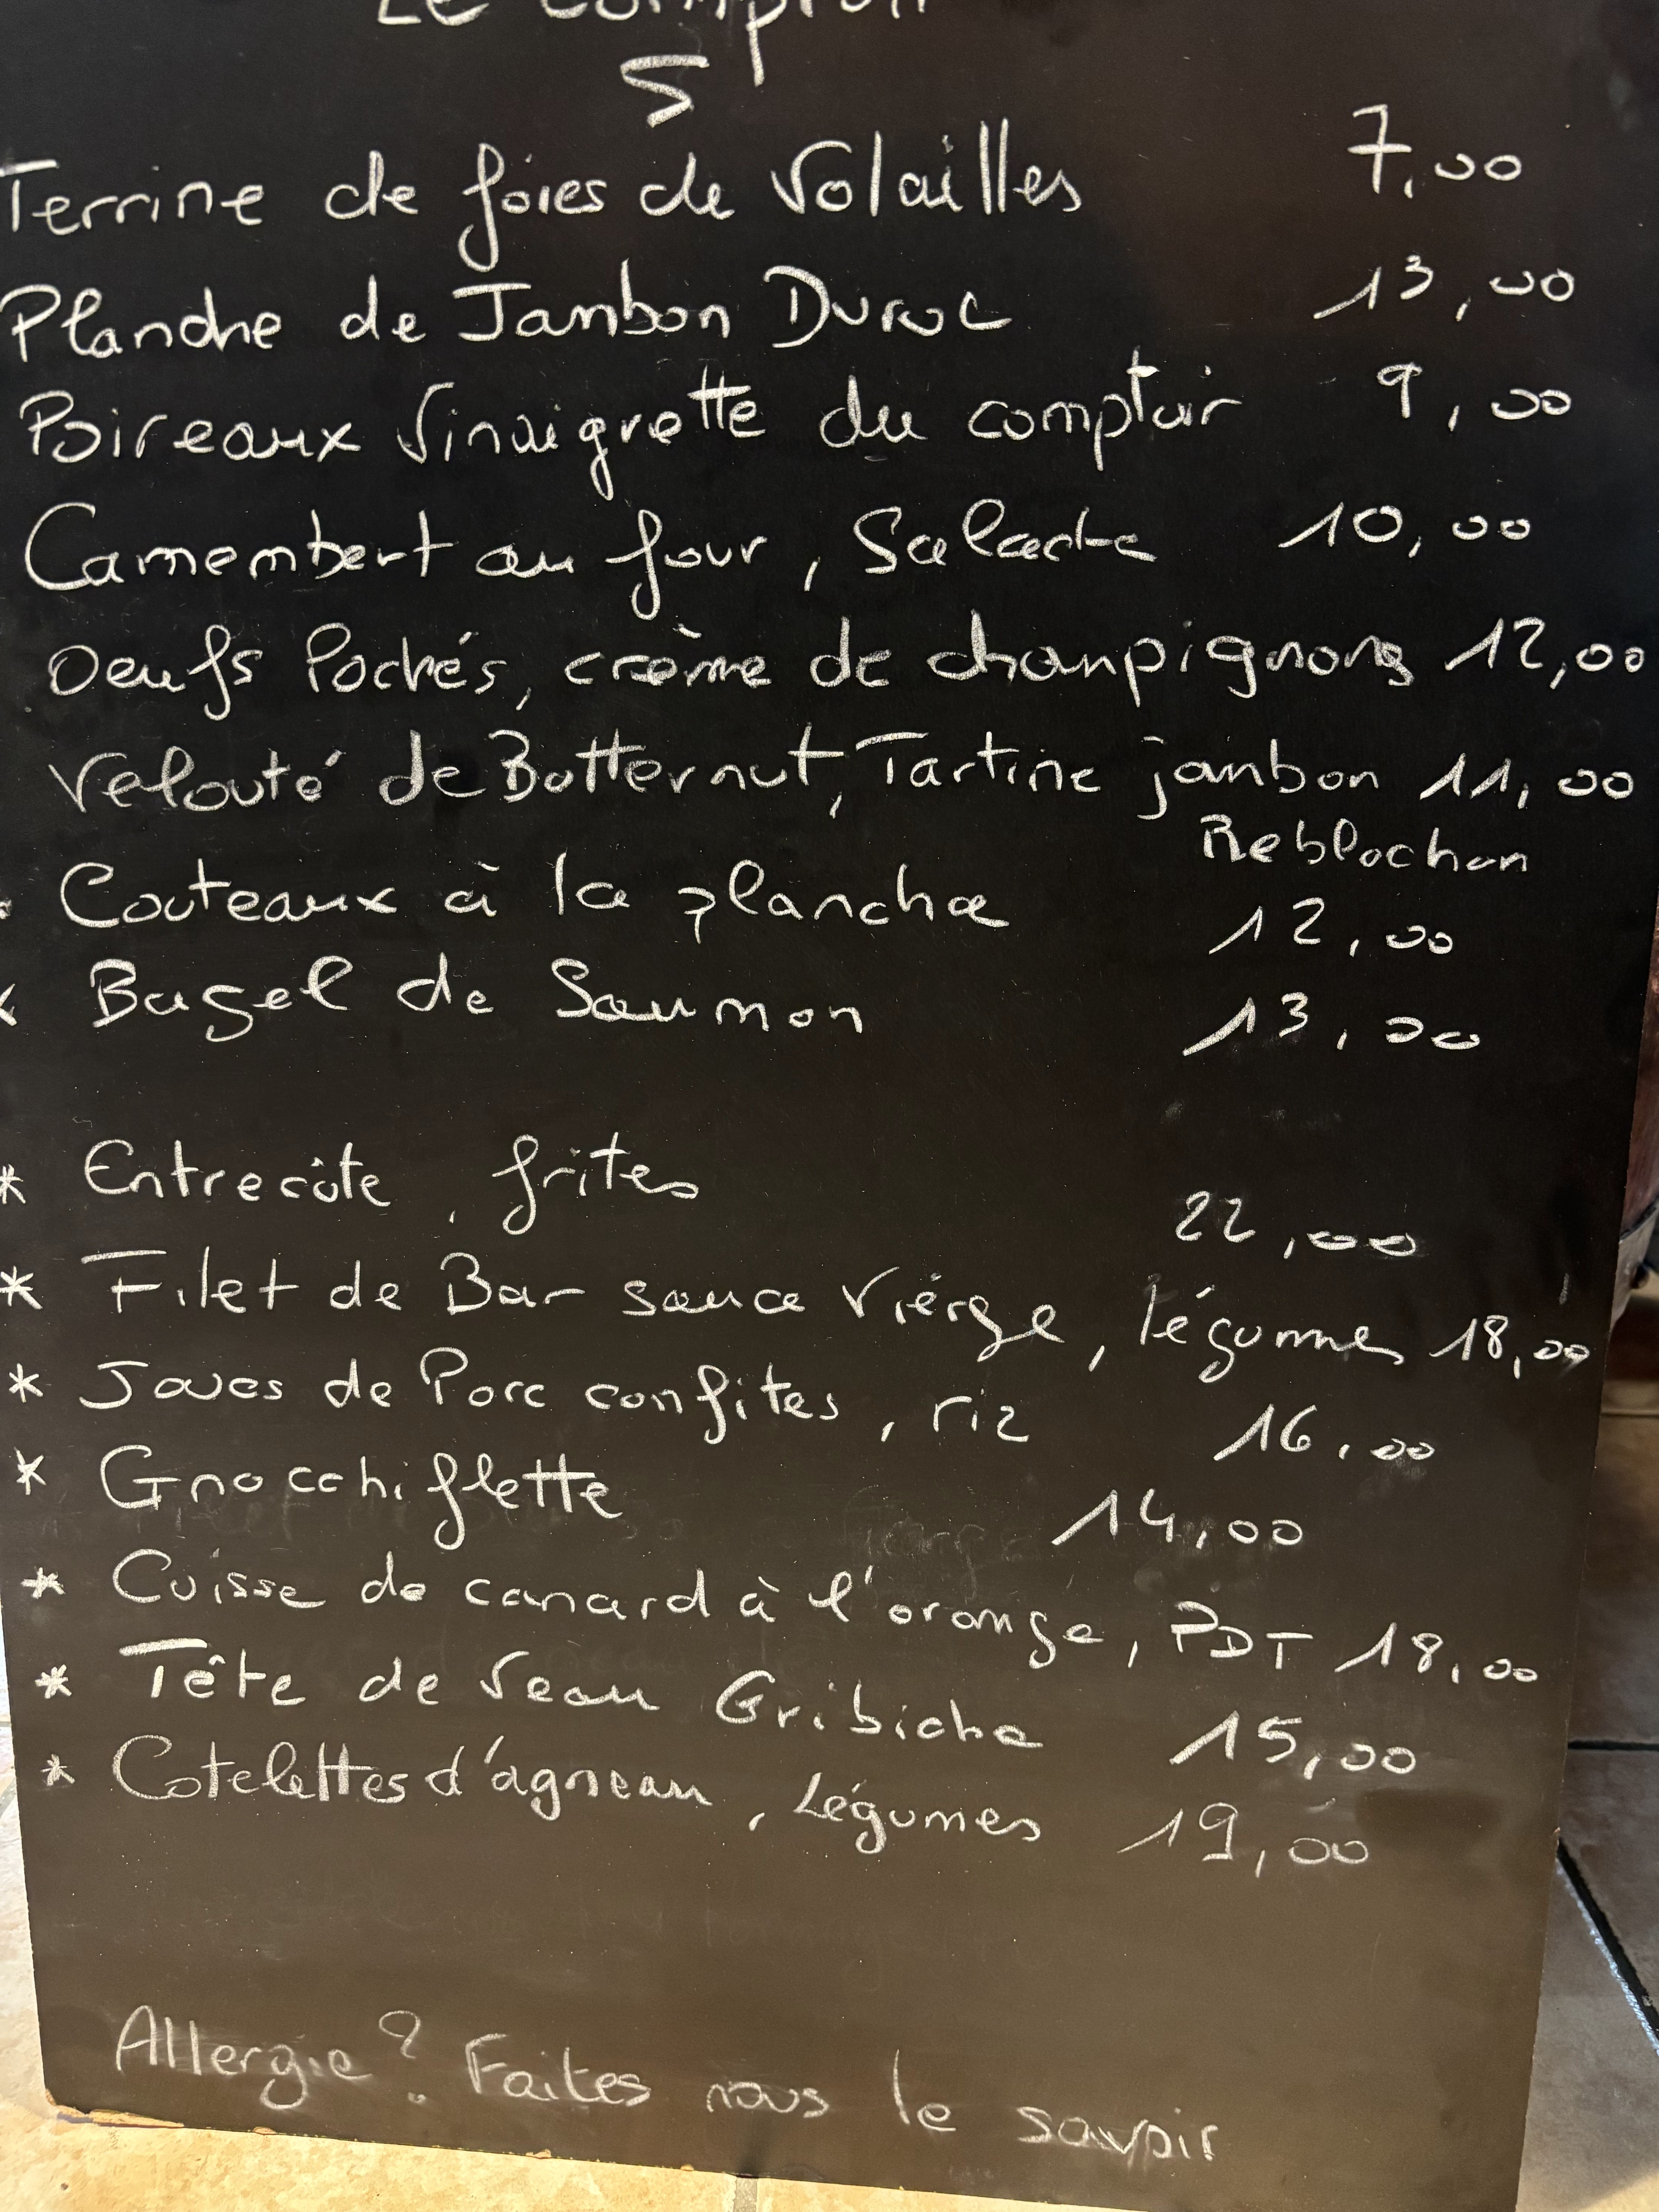 Le comptoir
5
Terrine de foies de Volailles 7,00
Planche de Jambon Duroc 13,00
Poireaux Vinaigrette du comptoir 9,00
Camembert au four, Salade 10,00
Oeufs Pochés, crème de champignons 12,00
Velouté de Botternut, Tartine jambon 11,00
Reblochon
. Couteaux à la plancha 12,00
* Bagel de Saumon 13,00
* Entrecôte, frites 22,00
* Filet de Bar sauce Viérge, légumes 18,00
* Joues de Porc confites, riz 16,00
* Gnocchiflette 14,00
* Cuisse de canard à l'orange, PDT 18,00
* Tête de veau Gribiche 15,00
* Cotelettes d'agneau, Légumes 19,00
Allergie? Faites nous le savoir